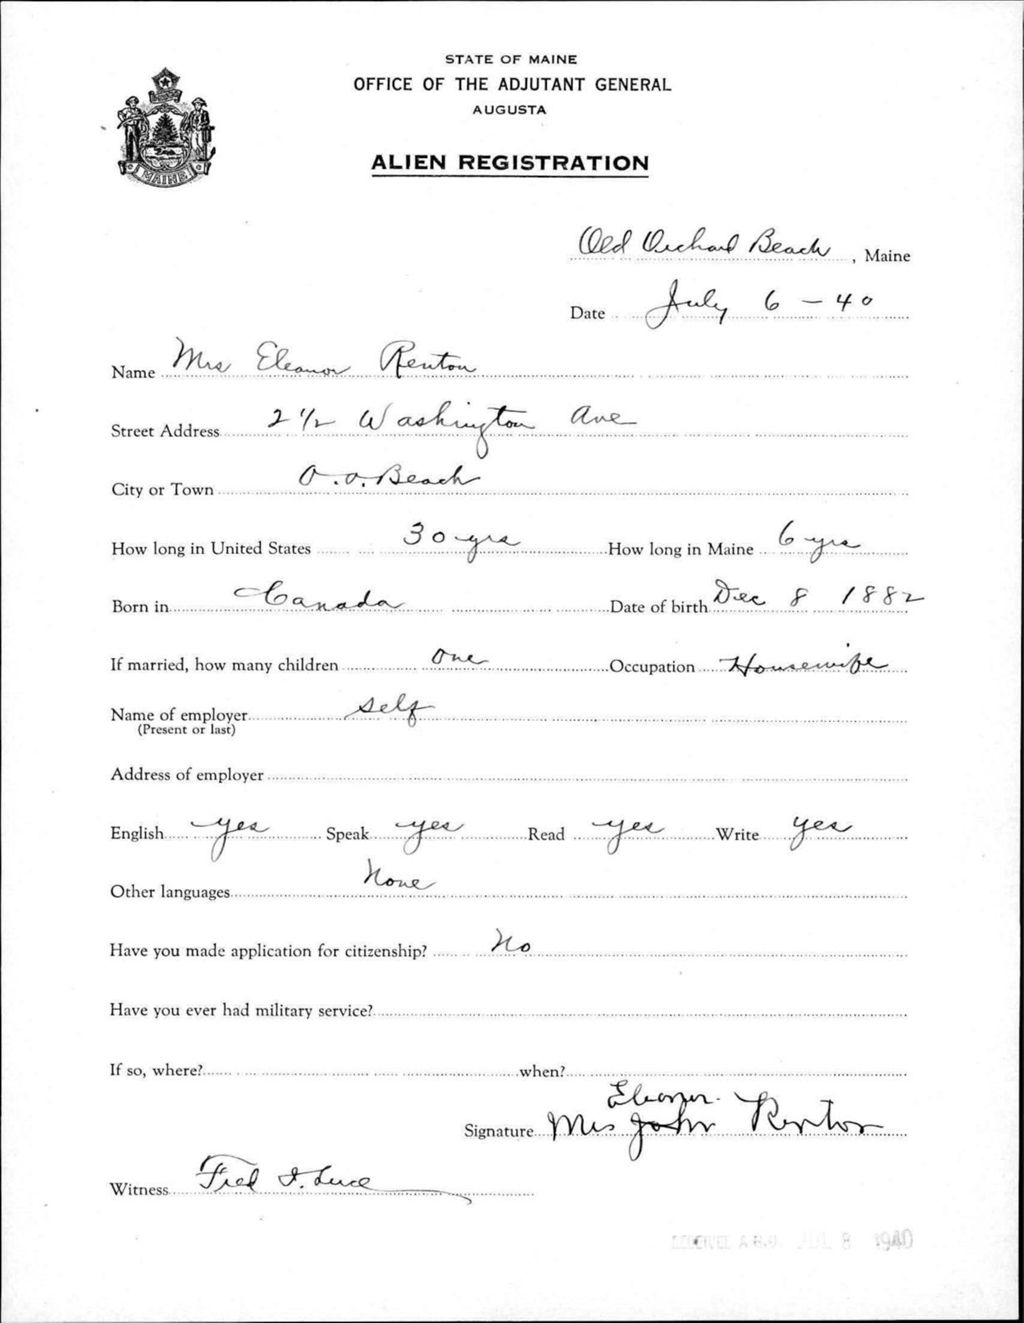 STATE OF MAINE
OFFICE OF THE ADJUTANT GENERAL
AUGUSTA
MAINE
ALIEN REGISTRATION
Old Orchard Beach, Maine
Date July 6 - 40
Name Mrs Eleanor Renton
Street Address 2 1/2 Washington Ave
City or Town O.O. Beach
How long in United States 30 yrs How long in Maine 6 yrs
Born in Canada Date of birth Dec 8 1882
If married, how many children one Occupation Housewife
Name of employer self
(Present or last)
Address of employer
English yes Speak yes Read yes Write yes
Other languages None
Have you made application for citizenship? No
Have you ever had military service?
If so, where? when?
Eleanor
Signature Mrs John Renton
Witness Fred I. Luce
RECEIVED A.G.O. JUL 8 1940